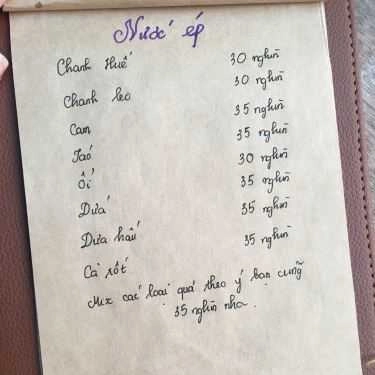 Nước ép
Chanh Huế 30 nghìn
Chanh leo 30 nghìn
Cam 35 nghìn
Táo 35 nghìn
Ổi 30 nghìn
Dứa 35 nghìn
Dưa hấu 35 nghìn
Cà rốt 35 nghìn
Mix các loại quả theo ý bạn cũng
35 nghìn nha.